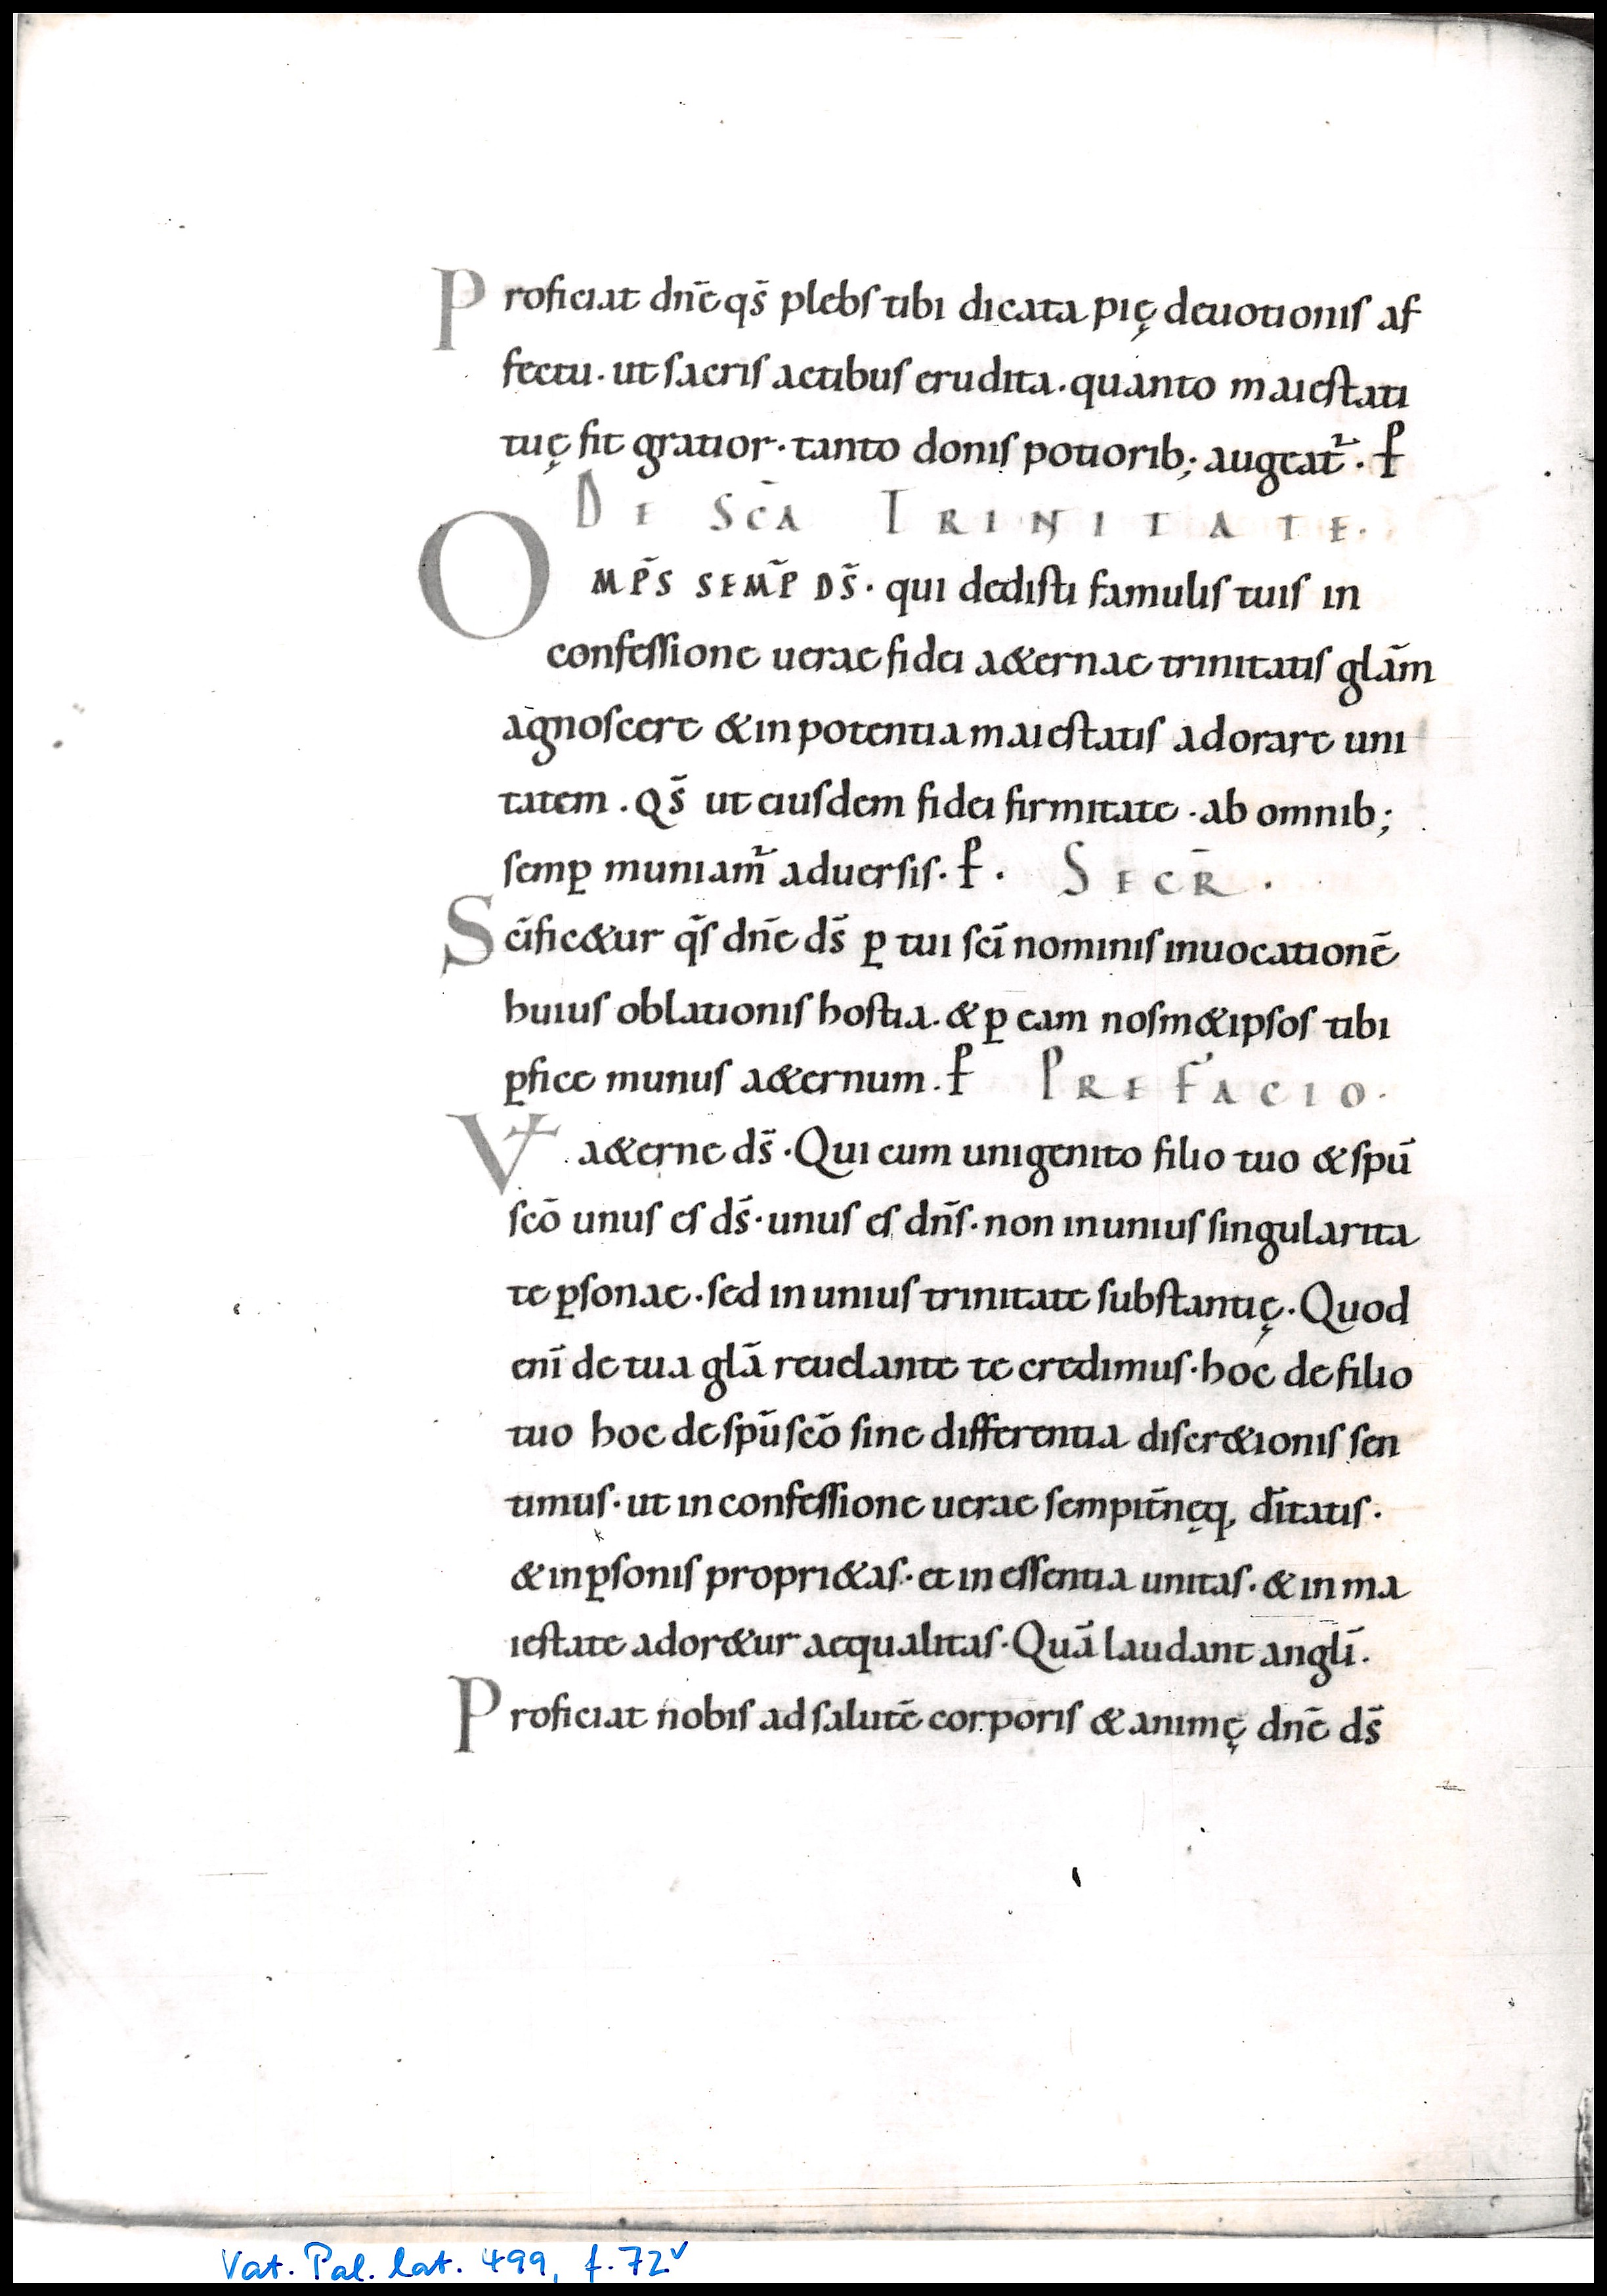 Proficiat dnē qs̄ plebs tibi dicata pię deuotionis af
fectu · ut sacris actibus erudita · quanto maiestati
tuę fit gratior · tanto donis potiorib; augeat᷑ · P̵
DE SCĀ TRINITATE ·
OMP̄S SEMP̄ DS̄ · qui dedisti famulis tuis in
confessione uerae fidei a&ernae trinitatis glām
agnoscere & in potentia maiestatis adorare uni
tatem . Qs̄ ut eiusdem fidei firmitate · ab omnib;
semꝑ muniam᷑ aduersis · P̵ · SECR̄ ·
Scīfic&ur qs̄ dnē ds̄ ꝑ tui scī nominis inuocationē
huius oblationis hostia · & ꝑ eam nosm&ipsos tibi
ꝑfice munus a&ernum · P̵ PREFACIO ·
V+ a&erne ds̄ · Qui cum unigenito filio tuo & spū
scō unus es ds̄ · unus es dn̄s · non in unius singularita
te ꝑsonae · sed in unius trinitate substantię · Quod
enī de tua glā reuelante te credimus · hoc de filio
tuo hoc de spū scō sine differentia discr&ionis sen
timus · ut in confessione uerae sempit̄nęq, dītatis ·
& in ꝑsonis propri&as · et in essentia unitas · & in ma
iestate ador&ur aequalitas · Quā laudant anglī ·
Proficiat nobis ad salutē corporis & animę dnē ds̄
Vat. Pal. lat. 499, f. 72v